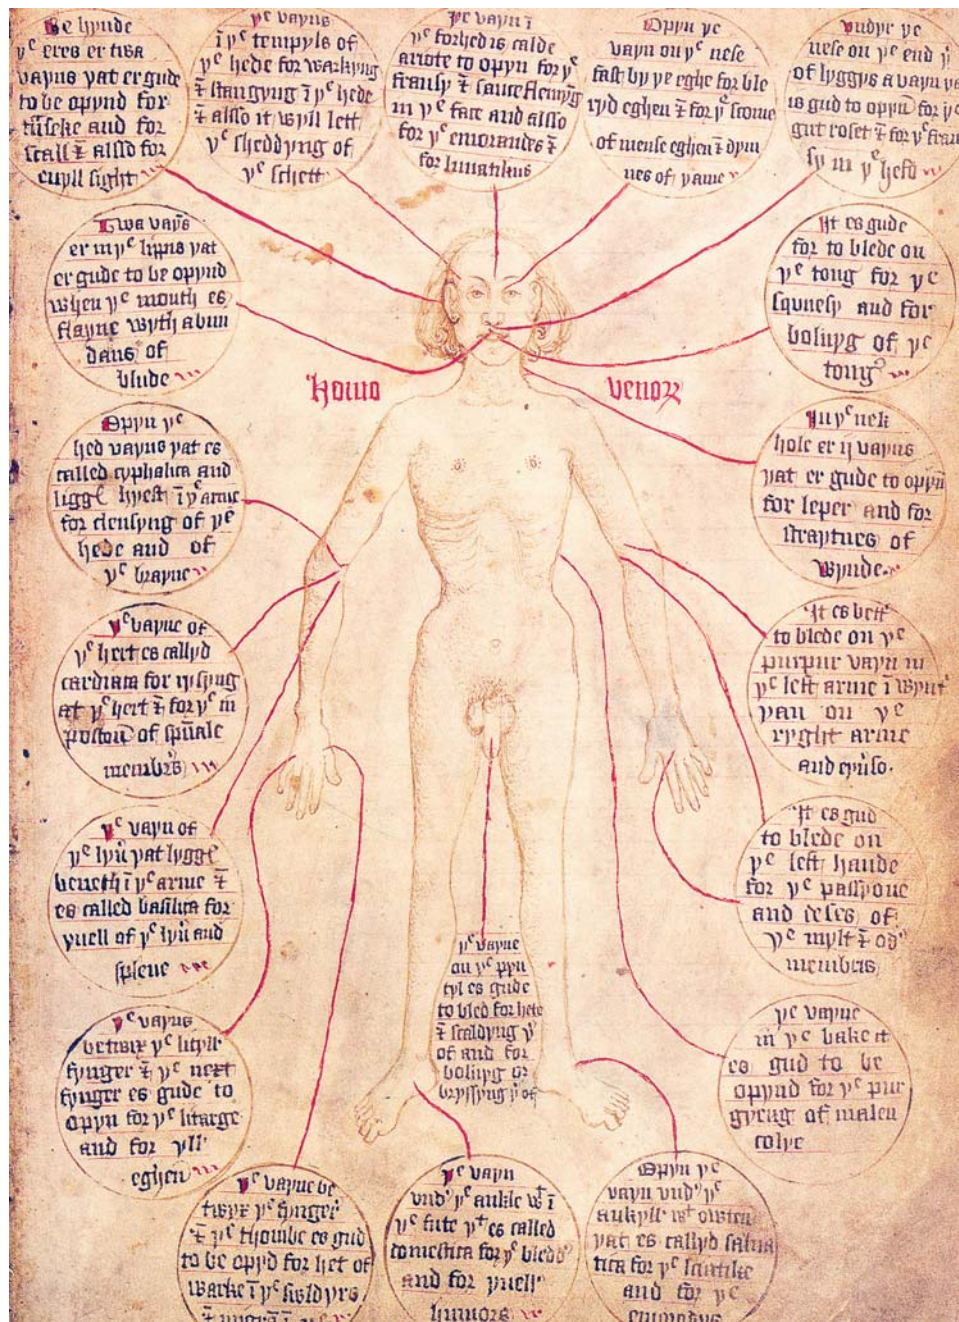 Be hynde
yᵉ eres er twa
vayns yat er gude
to be opynd for
and for
scall ⁊ allso for
euyll sight
yᵉ vayns
ī yᵉ templys of
yᵉ hede for warkyng
⁊ stangyng ī yᵉ hede
⁊ allso it wyll lett
yᵉ sheddyng of
yᵉ
yᵉ vayn ī
yᵉ forhed is calde
to opyn for yᵉ
fransy ⁊
in yᵉ face and allso
for yᵉ emoraudes ⁊
for lunatikus
Opyn ye
vayn on yᵉ nese
fast by ye eghe for ble
ryd eghen ⁊ for
of eghen ⁊ dym
nes of
Undyr ye
nese on yᵉ end
of lyggys a vayn ya
is gud to opyn for yᵉ
gut roset ⁊ for yᵉ fran
sy in yᵉ hefd
Twa vayns
er in yᵉ lippis yat
er gude to be opynd
when yᵉ mouth es
flayne wyth abun
dans of
blude
It es gude
for to blede on
yᵉ tong for yᵉ
squnesy and for
bolnyg of yᵉ
tong
homo
venoꝝ
Opyn yᵉ
hed vayns yat es
called cyphalica and
hyest ī yᵉ arme
for clensyng of yᵉ
hede and of
yᵉ brayne
In yᵉ nek
hole er ij vayns
yat er gude to opyn
for leper and for
straytnes of
wynde
yᵉ vayne of
yᵉ hert es callyd
cardiaca for
at yᵉ hert ⁊ for yᵉ in
of
membrs
It es bett
to blede on yᵉ
purpur vayn in
yᵉ left arme ī wynt
yan on yᵉ
ryght arme
and
yᵉ vayn of
yᵉ yat lygg
beneth ī yᵉ arme ⁊
es called basilica for
yuell of yᵉ and
splene
It es gud
to blede on
yᵉ left hande
for yᵉ passyone
and deses of
yᵉ mylt ⁊
membris
yᵉ vayne
on yᵉ pyn
tyl es gude
to bled for hete
⁊ scaldyng
of and for
bolnyg or
bryssyng of
yᵉ vayns
betwix yᵉ lityll
fynger ⁊ yᵉ next
fynger es gude to
opyn for yᵉ litarge
and for yll
eghen
yᵉ vayne
in yᵉ bake it
es gud to be
opynd for yᵉ pur
gyeng of malen
colye
yᵉ vayne be
twyx yᵉ fynger
⁊ yᵉ thombe es gud
to be opyd for het of
warke ī yᵉ
yᵉ vayn
vnd yᵉ ankle ī
yᵉ fute yᵗ es called
domestica for yᵉ
and for yuell
humors
Opyn yᵉ
vayn vnd yᵉ
ankyll
yat es callyd
tica for yᵉ
and for yᵉ